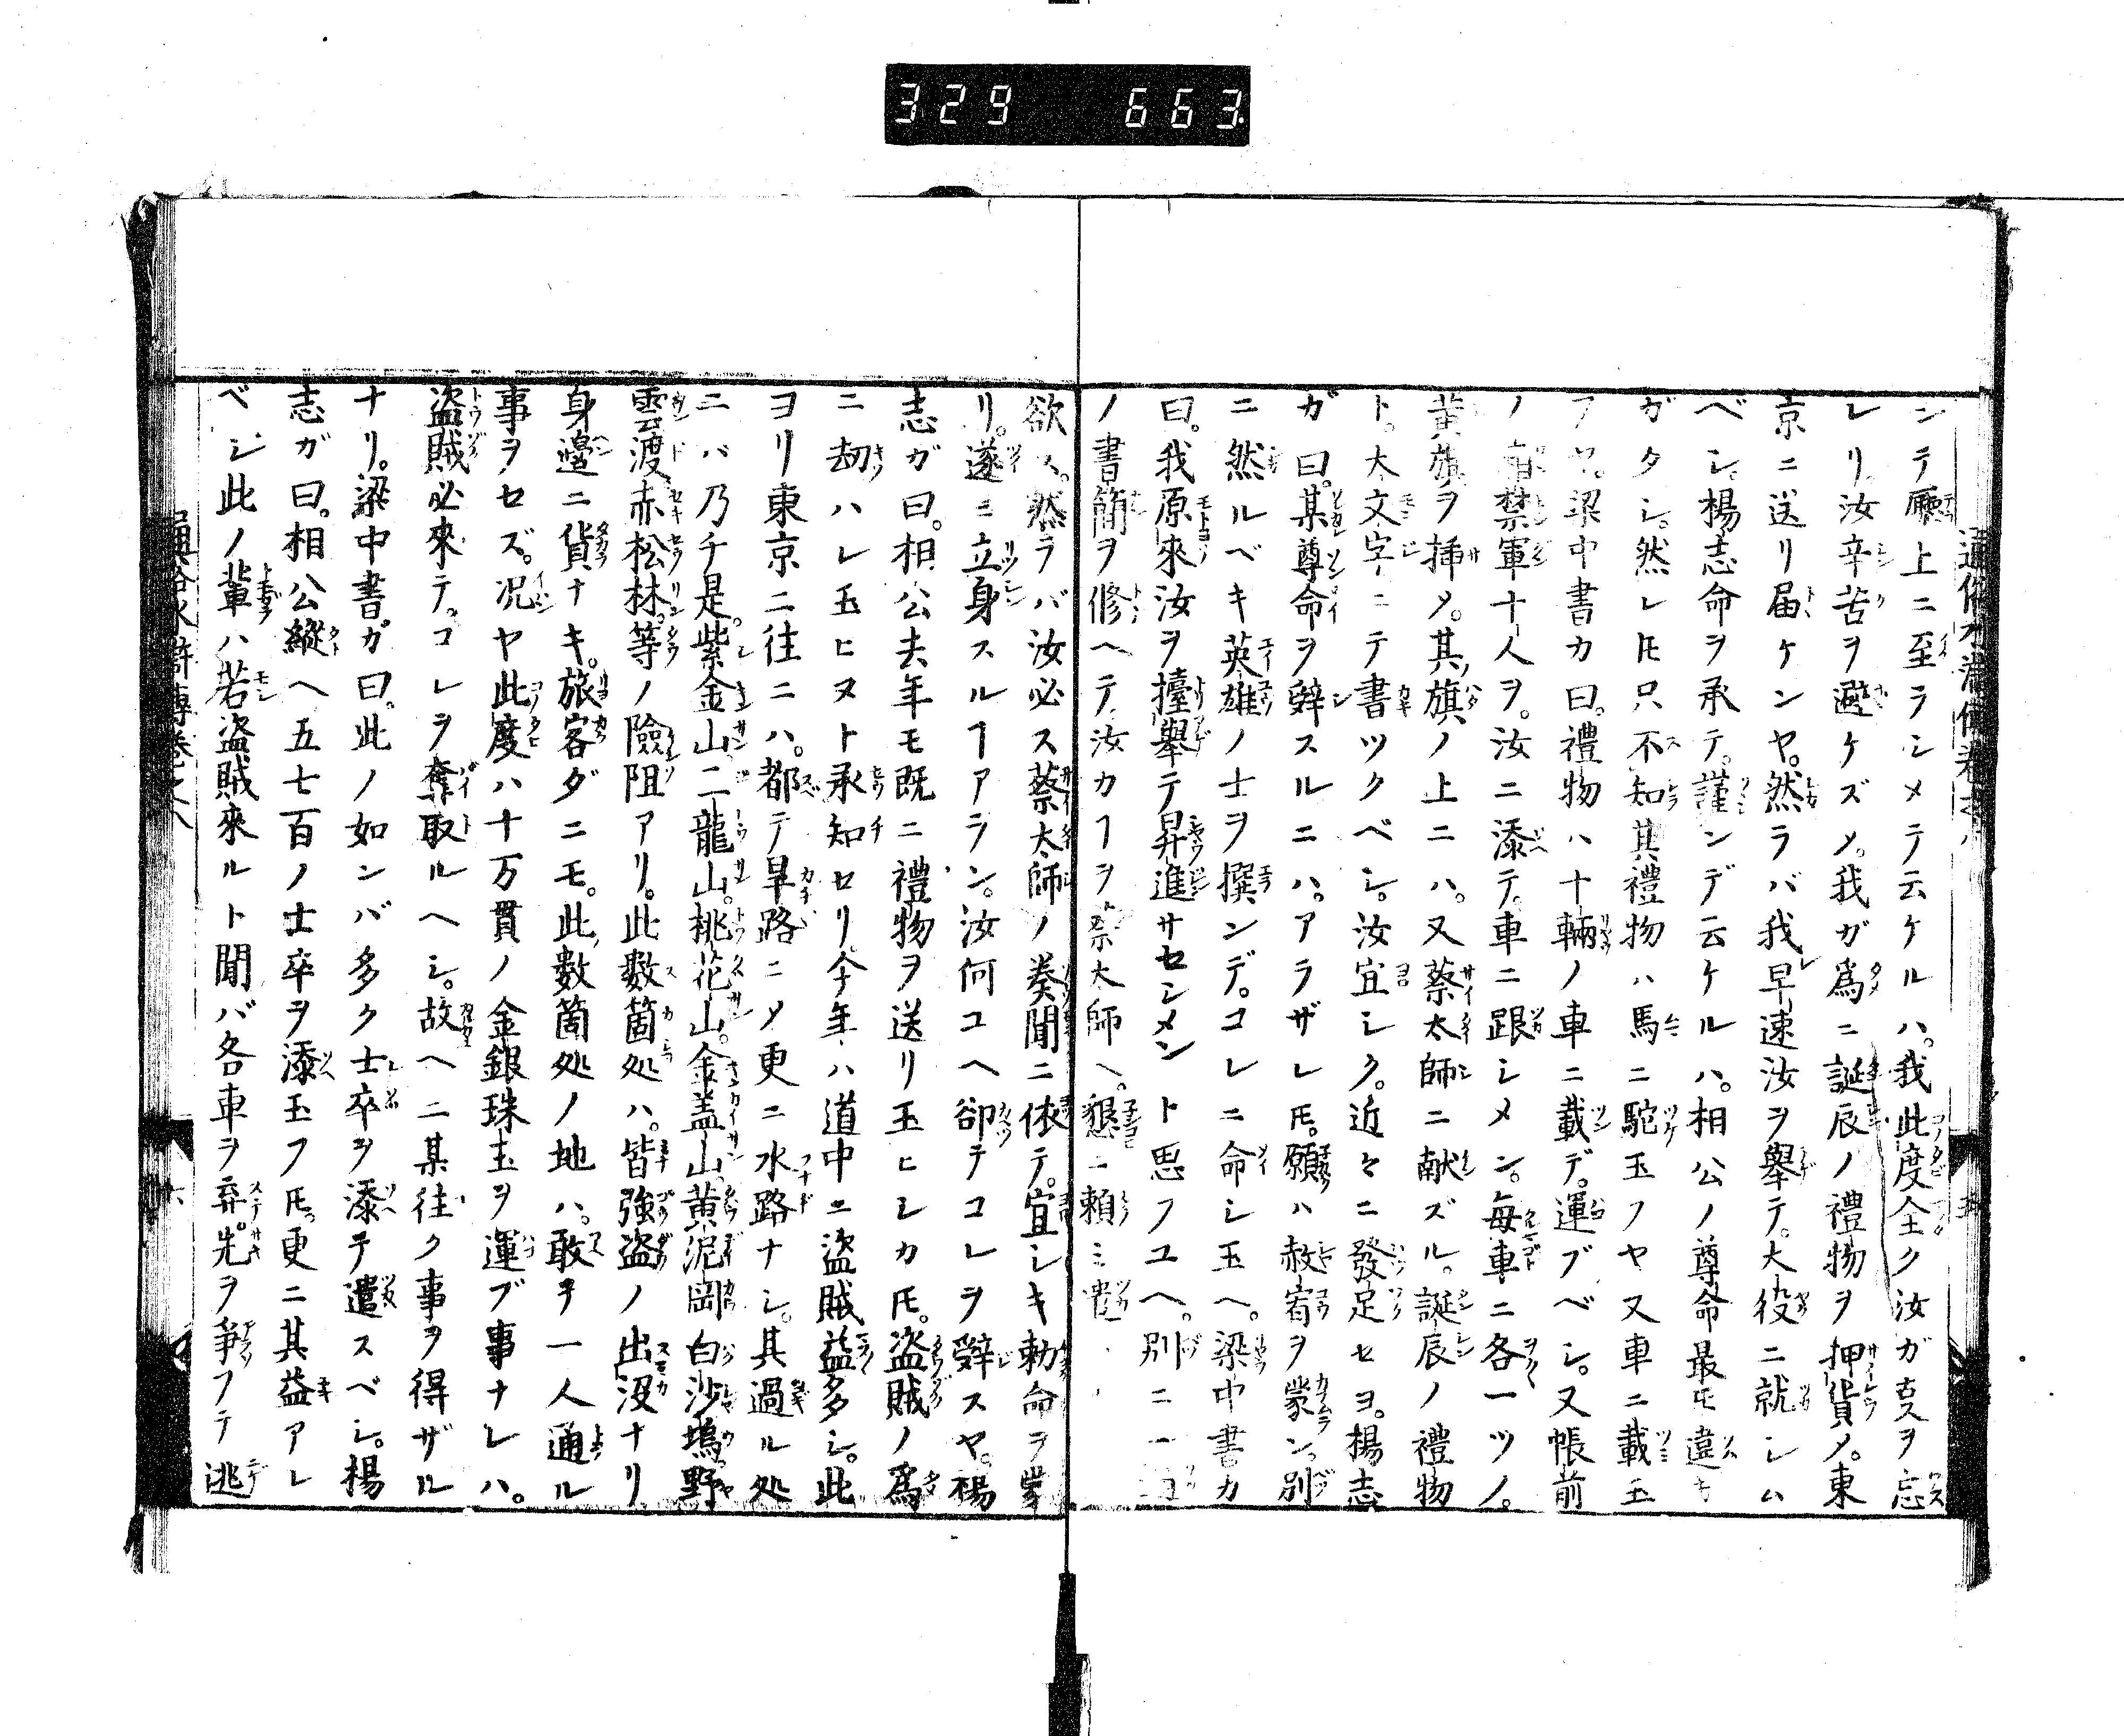 329 663
ンテ廰上ニ至ランメテ云ケルハ。我此度全ク汝ガ志ヲ忘
レリ。汝辛苦ヲ避ケズメ。我ガ爲ニ誕辰ノ禮物ヲ押貨メ。東
京ニ送リ届ケンヤ。然ラバ我早速汝ヲ擧テ。大役ニ就シム
ベシ。楊志命ヲ承テ。謹ンデ云ケルハ。相公ノ尊命最モ違キ
ガタシ。然レ𪜈只不知其禮物ハ馬ニ駝玉フヤ又車ニ載玉
フヤ。梁中書カ曰。禮物ハ十輛ノ車ニ載デ。運ブベシ。又帳前
ノ禁軍十人ヲ。汝ニ添テ。車ニ跟シメン。毎車ニ各一ツノ。
黄旗ヲ挿メ。其旗ノ上ニハ。又蔡太師ニ献ズル。誕辰ノ禮物
ト。大文字ニテ書ツクベシ。汝宜シク。近々ニ發足セヨ。楊志
ガ曰。某尊命ヲ辤スルニハ。アラザレ𪜈。願ハ赦宥ヲ蒙ン。別
ニ然ルベキ英雄ノ士ヲ撰ンデ。コレニ命シ玉ヘ。梁中書カ
曰。我原來汝ヲ擡擧テ昇進サセンメント思フユヘ。別ニ一
ノ書簡ヲ修ヘテ汝カヿヲ蔡太師ヘ。懇ニ頼ミ遣
欲ス。然ラバ汝必ス蔡太師ノ奏聞ニ依テ。宜シキ勅命ヲ蒙
リ。遂ニ立身スルヿアラン。汝何ユヘ卻テコレヲ辤スヤ。楊
志ガ曰。相公去年モ既ニ禮物ヲ送リ玉ヒシカ𪜈。盗賊ノ爲
ニ刧ハレ玉ヒヌト承知セリ。今年ハ道中ニ盗賊益多シ。此
ヨリ東京ニ往ニハ。都テ旱路ニメ更ニ水路ナシ。其過ル処
ニハ乃チ是。紫金山二龍山。桃花山。金盖山。黄泥岡白沙塢野
雲渡赤松林。等ノ險阻アリ。此數箇処ハ。皆強盗ノ出没ナリ
身邊ニ貨ナキ。旅客ダニモ。此數箇処ノ地ハ。敢テ一人通ル
事ヲセズ。况ヤ此度ハ十万貫ノ金銀珠玉ヲ運ブ事ナレハ。
盗賊必來テ。コレヲ奪取ルヘシ。故ヘニ某往ク事ヲ得ザル
ナリ。梁中書ガ曰。此ノ如ンバ多ク士卒ヲ添テ遣スベシ。楊
志ガ曰。相公縱ヘ五七百ノ士卒ヲ添玉フ𪜈。更ニ其益アレ
ベシ此ノ輩ハ若盗賊來ルト聞バ各車ヲ弃。先ヲ爭フテ逃